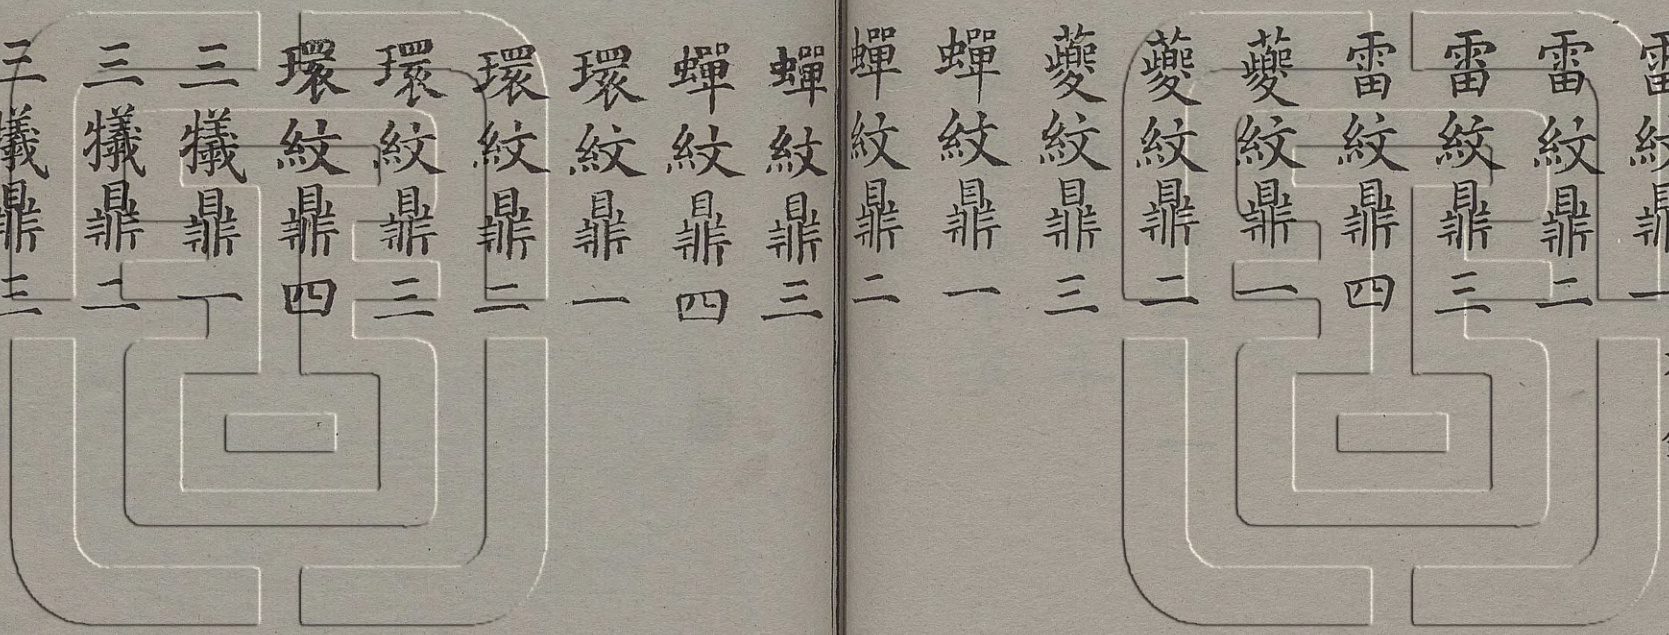 雷紋鼎一
雷紋鼎二
雷紋鼎三
雷紋鼎四
蘷紋鼎一
蘷紋鼎二
蘷紋鼎三
蟬紋鼎一
蟬紋鼎二
蟬紋鼎三
蟬紋鼎四
環紋鼎一
環紋鼎二
環紋鼎三
環紋鼎四
三犧鼎一
三犧鼎二
三犧鼎三